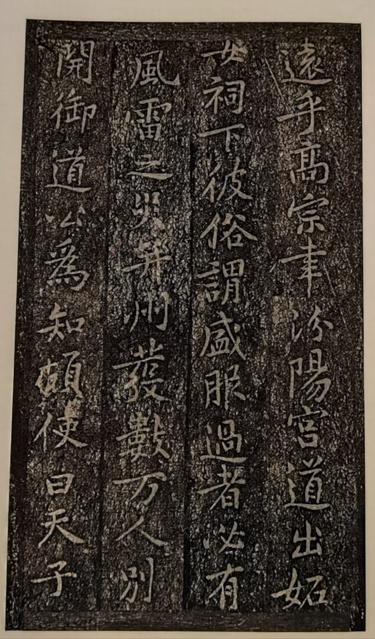 遠乎高宗幸汾陽宮道出妬
女祠下彼俗謂盛服過者必有
風雷之災并州發數万人別
開御道公為知頓使曰天子